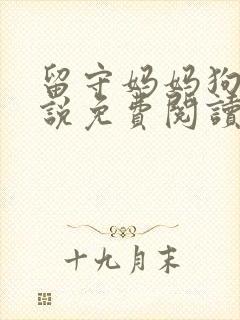 留守妈妈狗
說免費閱讀
十九月末